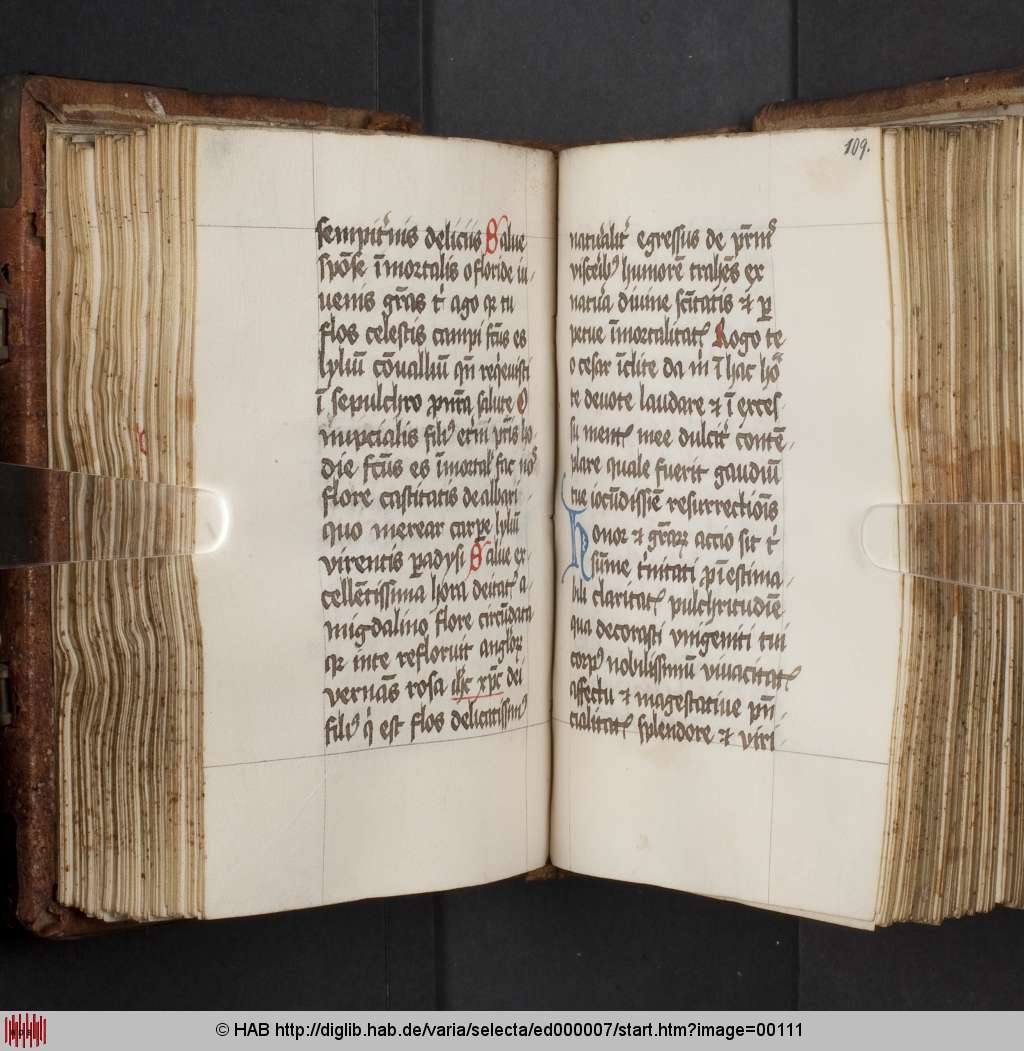 sempit̾nis deliciis Salue
spōse īmortalis o floride iu-
uenis gr̄as t̾ ago qr tu
flos celestis campi fc̄us es
lyliū cōualliū qn̄ reqͥeuisti
ī sepulchro ꝓ nr̄a salute O
nupcialis filiꝰ et̾ni pr̄is ho-
die fc̄us es īmortaľ fac
flore castitatis dealbari
quo merear carpe lyliū
virentis ꝑadysi Salue ex-
cellētissima hora deitat̾ a-
migdalino flore circūdata
qr in te refloruit angloꝝ
vernās rosa ih̄c xp̄c dei
filiꝰ qͥ est flos delicatissimꝰ
109.
naturalit̾ egressus de pr̄nis
visceribꝰ humorē trahēs ex
natura diuine sc̄titatis ⁊ ꝑ
petue īmortalitat̾ Rogo te
o cesar īclite da m̄ ī hac ho-
te deuote laudare ⁊ ī exces-
su ment̾ mee dulcit̾ contē-
plare quale fuerit gaudiū
tue iocūdissīe resurrectiōis
Honor ⁊ gr̄aꝝ actio sit t̾
sūme t̾nitati p̄i estima-
bili claritat̾ pulchritudīe
qua decorasti vnigeniti tui
corpꝰ nobilissimū viuacitat̾
affectu ⁊ magestatiue pn̄-
cialitat̾ splendore ⁊ viri-
© HAB http://diglib.hab.de/varia/selecta/ed000007/start.htm?image=00111